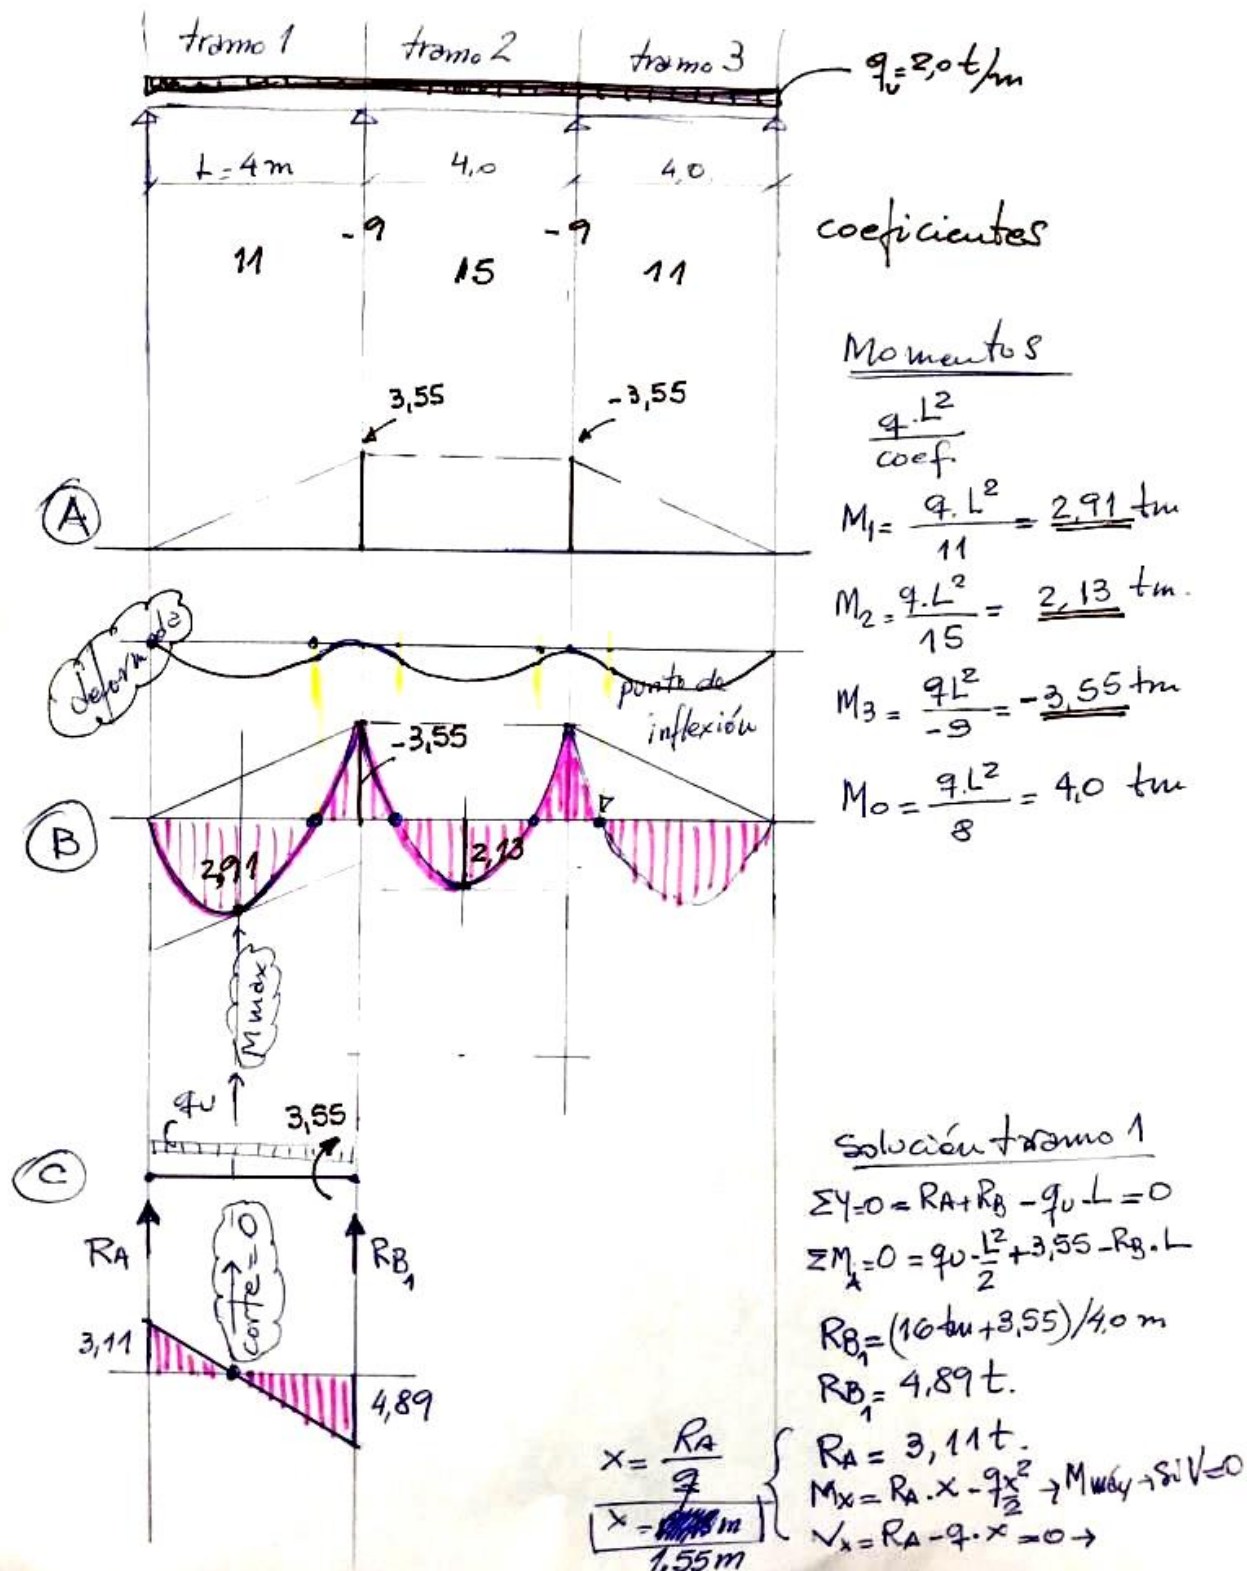 tramo 1 tramo 2 tramo 3
qu=2,0 t/m
L=4m 4,0 4,0
-9 -9
11 15 11
coeficientes
Momentos
q.L²/coef.
3,55 -3,55
A
M1= q.L²/11 = 2,91 tm
M2= q.L²/15 = 2,13 tm.
M3= qL²/-9 = -3,55 tm
Mo= q.L²/8 = 4,0 tm
deformada
punto de
inflexión
-3,55
B
2,91
2,13
Mmáx
qu
3,55
C
RA
corte=0
RB1
3,11
4,89
Solución tramo 1
ΣY=0=RA+RB-qu.L=0
ΣMA=0=qu.L²/2+3,55-RB.L
RB1=(16tm+3,55)/4,0 m
RB1= 4,89t.
RA= 3,11t.
Mx=RA.x-qx²/2→Mmáx→Si V=0
Vx=RA-q.x=0→
x= RA/q
x= m
1,55m